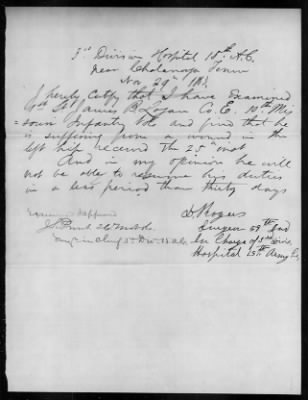 3rd Division Hospital 15th A.C.
near Chatanooga Tenn
Nov 29th 1863
I hereby certify that I have examined
James B. Logan Co. E. 10th Mis
souri Infantry Vols and find that he
is suffering from a wound in the
left hip received the 25th inst
And in my opinion he will
not be able to resume his duties
in a less period than thirty days
D. Rogers
Surgeon 59th Ind
In Charge of 3rd Divis
Hospital 15th Army C.